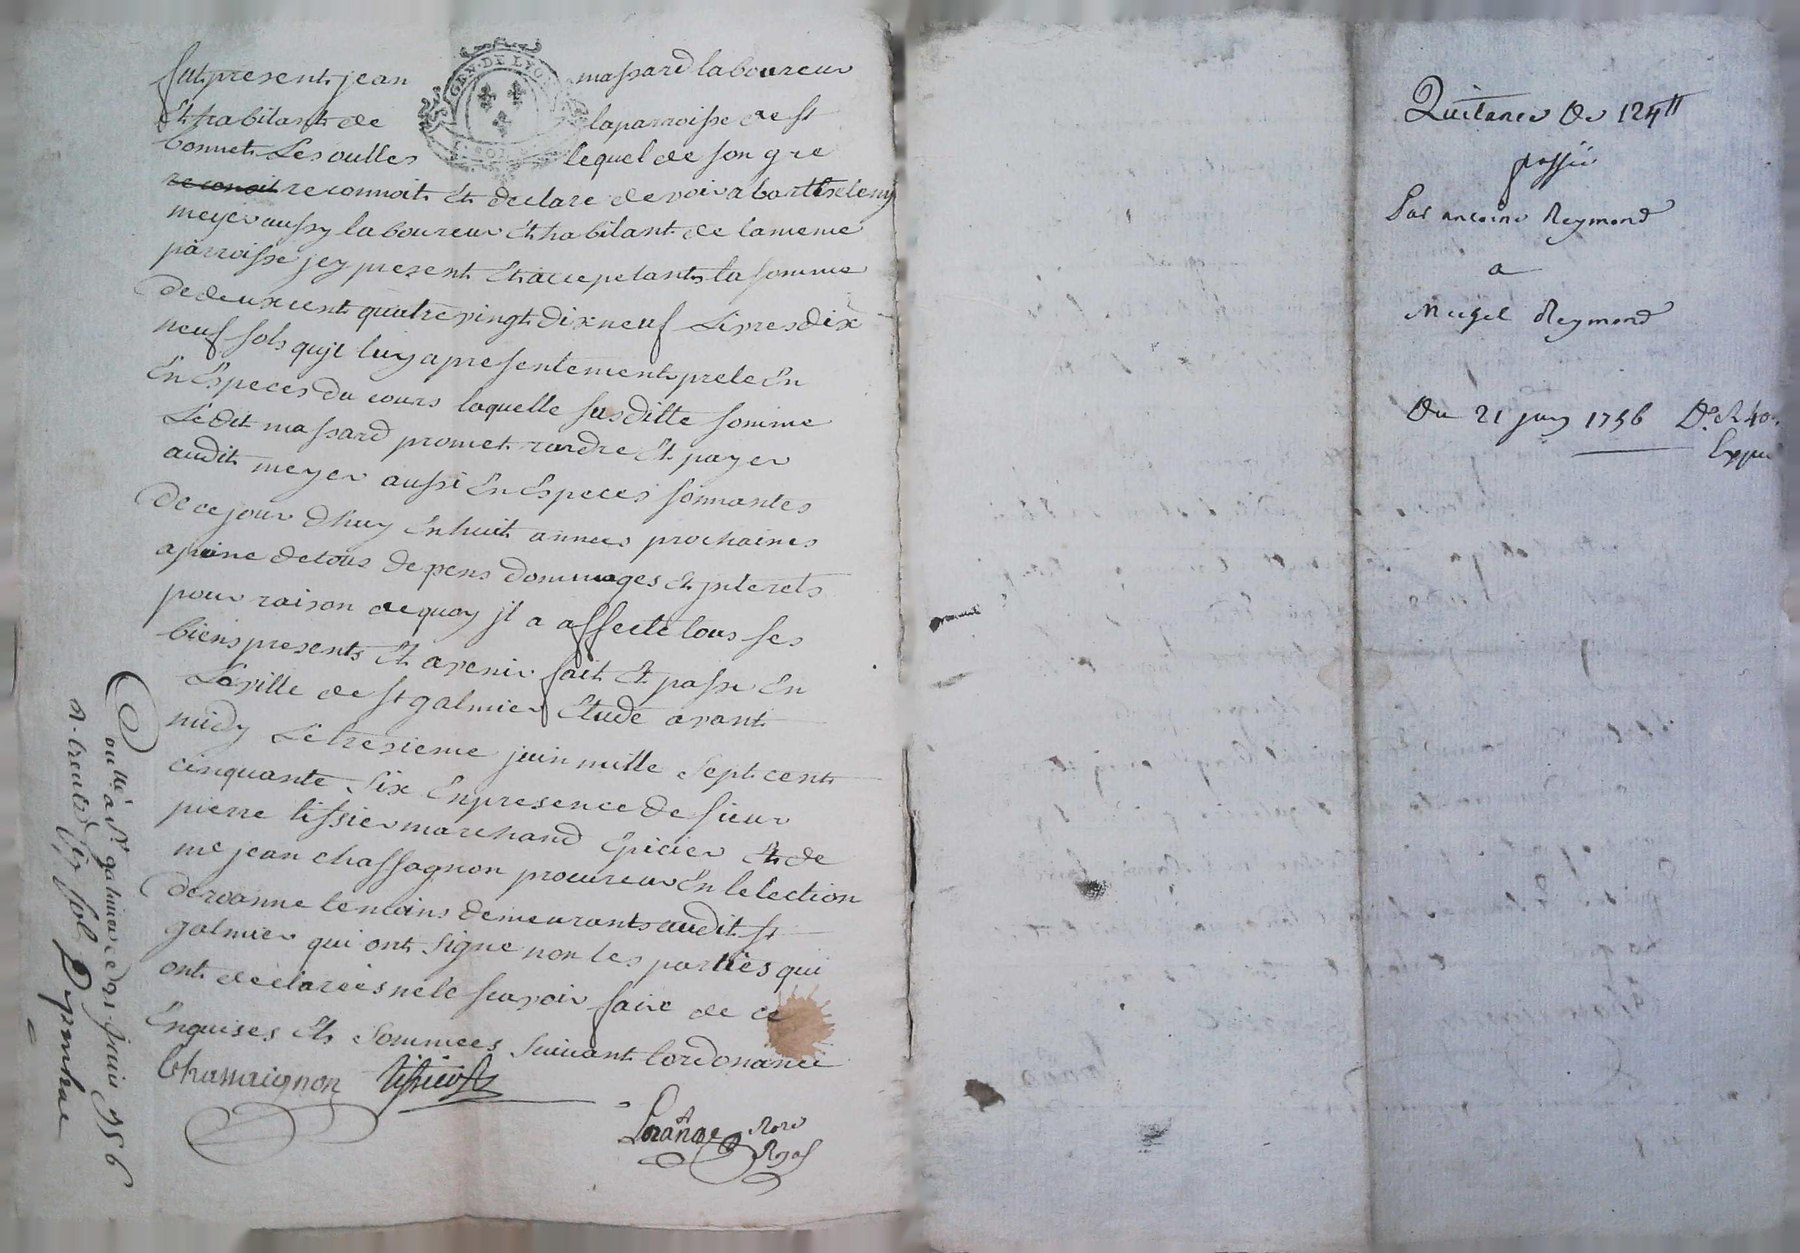 fut present jean massard laboureur
GEN. DE LYON
Et habitant de la parroisse de st
bonnet Les oulles lequel de son gre
reconoit reconnoit Et declare devoir a barthelemy
meyer aussy laboureur Et habitant de la meme
parroisse jcy present Et acceptant la somme
de deux cent quatre vingt dix neuf Livres dix
neuf sols qu'jl luy a presentement prete En
En Especes du cours laquelle susditte somme
Ledit massard promet randre Et payer
audit meyer aussi En Especes sonnantes
de ce jour dhuy En huit annees prochaines
a peine de tous depens dommages Et jnterets
pour raison de quoy jl a affecté tous ses
biens presents Et avenir fait Et passe En
La ville de st galmier Etude avant
midy Le tresieme juin mille sept cent
cinquante six En presence de sieur
pierre tissier marchand Epicier Et de
me jean chassagnon procureur En lelection
de roanne temoins demeurants audit st
galmier qui ont signe non les parties qui
ont declarées ne le scavoir faire de ce
Enquises Et sommees suivant lordonance
Chassaignon tissier
Not.re
Royal
à St galmier ce 21. juin 1756
Quitance De 124tt
passée
Par antoine Reymond
a
Reymond
Du 21 juin 1756